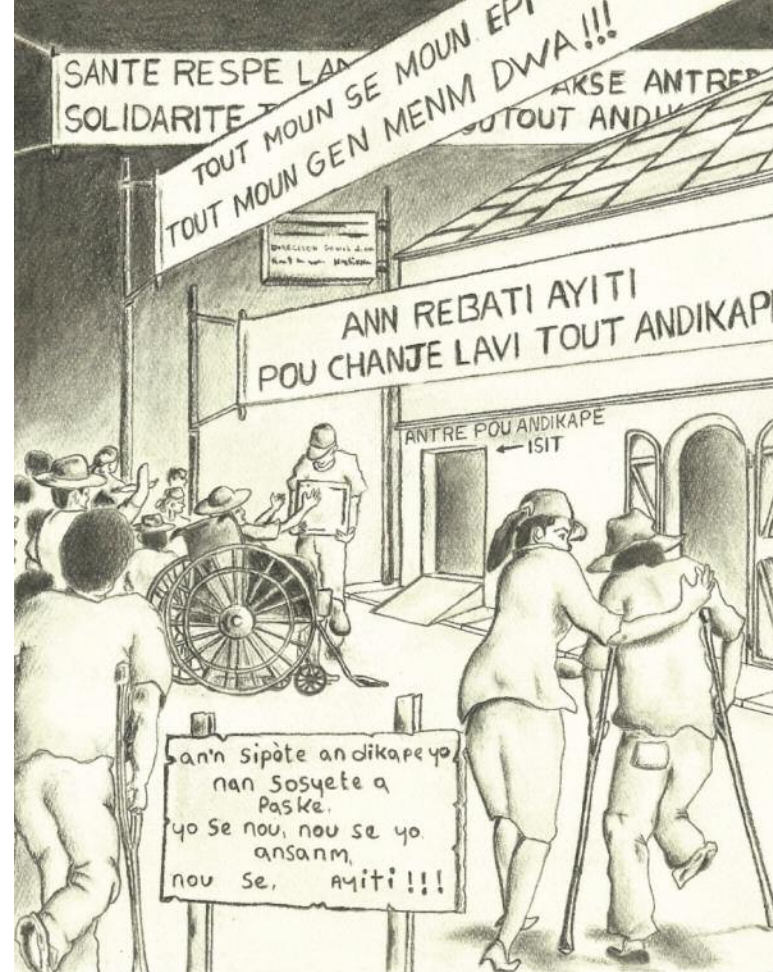 SANTE RESPE
SOLIDARITE
AKSE
TOUT MOUN SE MOUN. EPI
TOUT MOUN GEN MENM DWA!!!
ANN REBATI AYITI
POU CHANJE LAVI TOUT ANDIKAPE
ANTRE POU ANDIKAPE
← ISIT
an'n sipòte andikape yo
nan sosyete a
Paske.
yo se nou, nou se yo.
ansanm,
nou se, Ayiti!!!